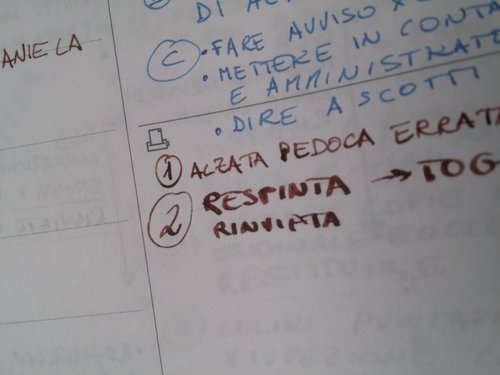 ANIELA
DI
C • FARE AVVISO X
• METTERE IN CONTA
E AMMINISTRATO
• DIRE A SCOTTI
1 ALZATA PEDOCA ERRATA
2 RESPINTA → TOG
RINVIATA